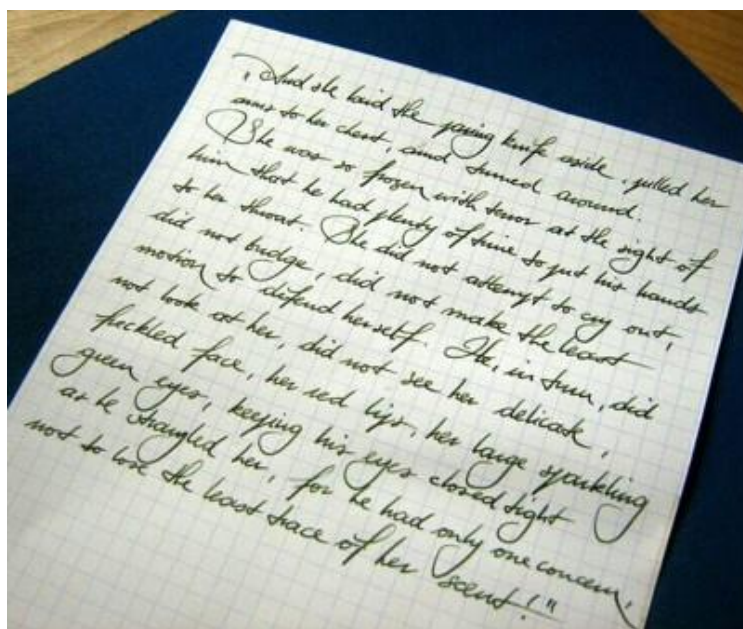 „And she laid the paring knife aside, pulled her
arms to her chest, and turned around.
She was so frozen with terror at the sight of
him that he had plenty of time to put his hands
to her throat. She did not attempt to cry out,
did not budge, did not make the least
motion to defend herself. He, in turn, did
not look at her, did not see her delicate,
freckled face, her red lips, her large sparkling
green eyes, keeping his eyes closed tight
as he strangled her, for he had only one concern,
not to lose the least trace of her scent!"